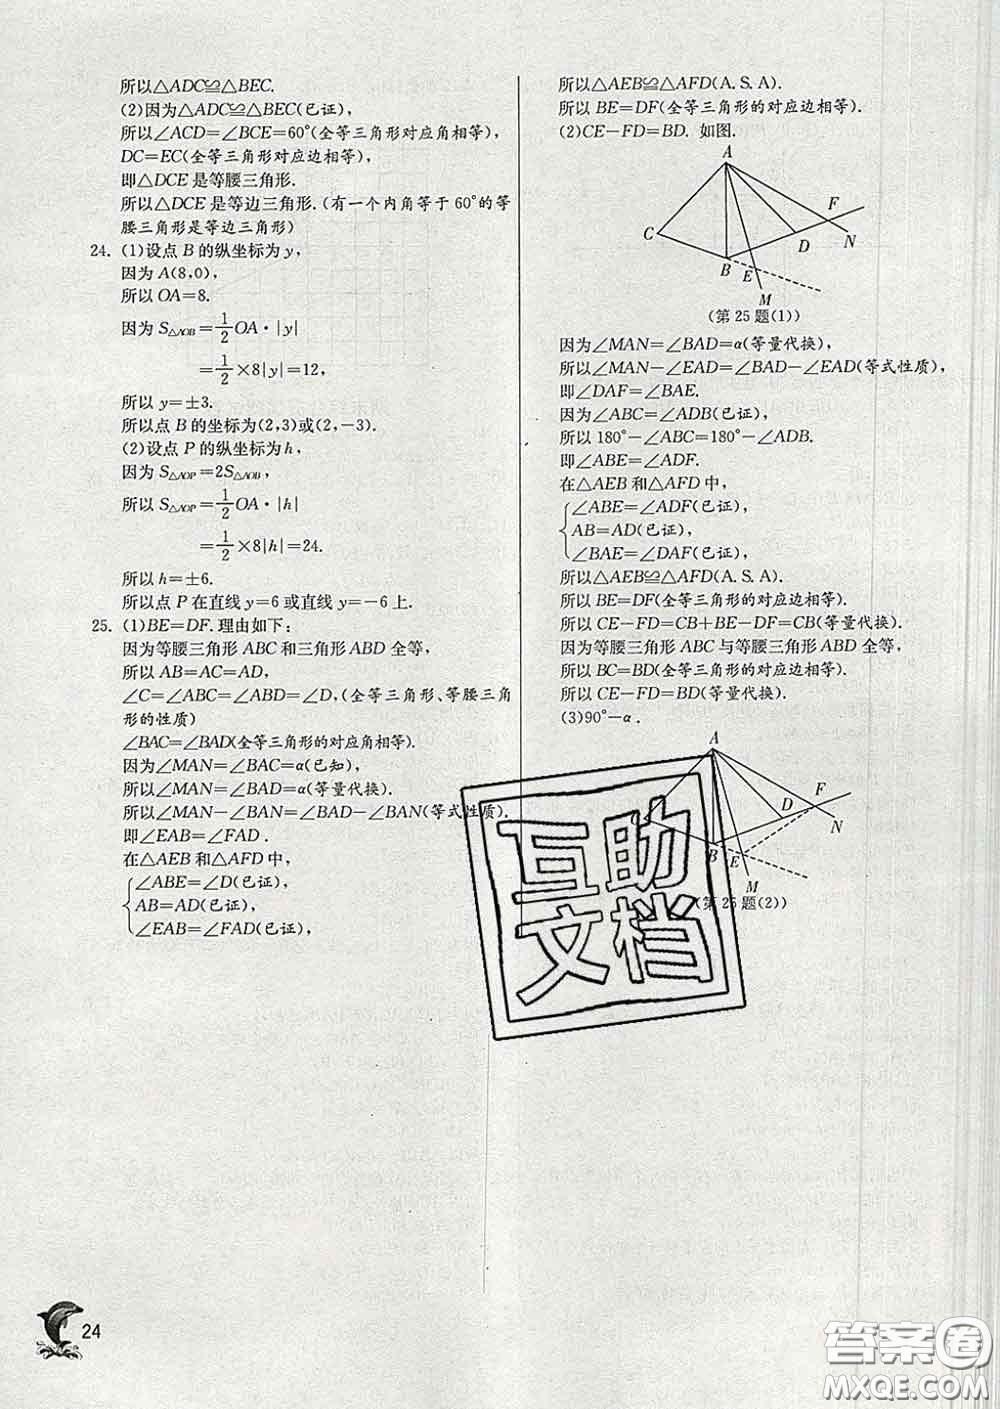 所以△ADC≌△BEC.
(2)因为△ADC≌△BEC(已证),
所以∠ACD=∠BCE=60°(全等三角形对应角相等),
DC=EC(全等三角形对应边相等),
即△DCE是等腰三角形.
所以△DCE是等边三角形.(有一个内角等于60°的等
腰三角形是等边三角形)
24. (1)设点B的纵坐标为y,
因为A(8,0),
所以OA=8.
因为S△AOB=1/2 OA·|y|
=1/2×8|y|=12,
所以y=±3.
所以点B的坐标为(2,3)或(2,-3).
(2)设点P的纵坐标为h,
因为S△AOP=2S△AOB,
所以S△AOP=1/2 OA·|h|
=1/2×8|h|=24.
所以h=±6.
所以点P在直线y=6或直线y=-6上.
25. (1)BE=DF.理由如下:
因为等腰三角形ABC和三角形ABD全等,
所以AB=AC=AD,
∠C=∠ABC=∠ABD=∠D,(全等三角形、等腰三角
形的性质)
∠BAC=∠BAD(全等三角形的对应角相等).
因为∠MAN=∠BAC=α(已知),
所以∠MAN=∠BAD=α(等量代换).
所以∠MAN-∠BAN=∠BAD-∠BAN(等式性质).
即∠EAB=∠FAD.
在△AEB和△AFD中,
∠ABE=∠D(已证),
AB=AD(已证),
∠EAB=∠FAD(已证),
所以△AEB≌△AFD(A.S.A).
所以BE=DF(全等三角形的对应边相等).
(2)CE-FD=BD. 如图.
A
F
C
D
N
B
E
M
(第25题(1))
因为∠MAN=∠BAD=α(等量代换),
所以∠MAN-∠EAD=∠BAD-∠EAD(等式性质),
即∠DAF=∠BAE.
因为∠ABC=∠ADB(已证),
所以180°-∠ABC=180°-∠ADB.
即∠ABE=∠ADF.
在△AEB和△AFD中,
∠ABE=∠ADF(已证),
AB=AD(已证),
∠BAE=∠DAF(已证),
所以△AEB≌△AFD(A.S.A).
所以BE=DF(全等三角形的对应边相等).
所以CE-FD=CB+BE-DF=CB(等量代换).
因为等腰三角形ABC与等腰三角形ABD全等,
所以BC=BD(全等三角形的对应边相等).
所以CE-FD=BD(等量代换).
(3)90°-α.
A
F
D
N
B
E
M
(第25题(2))
互助
文档
24
答案圈
MXQE.COM